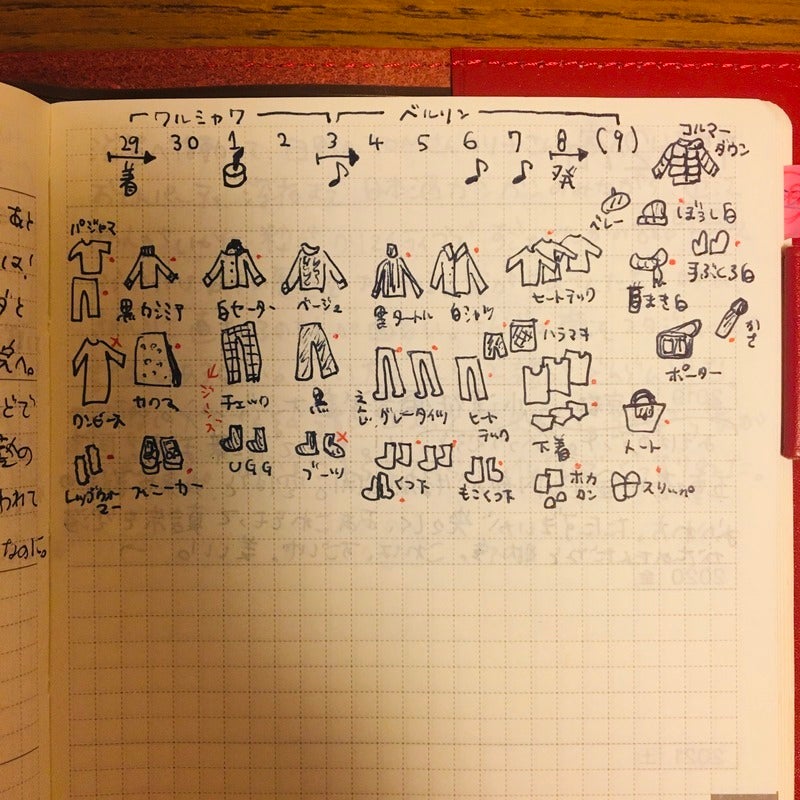 ワルシャワ ベルリン
29 30 1 2 3 4 5 6 7 8 (9)
着 発
コルマー
ダウン
ベレー ぼうし白
パジャマ
手ぶくろ白
黒カシミア 白セーター ベージュ 黒タートル 白シャツ ヒートテック 首まき白
かさ
ハラマキ
ポーター
ワンピース チェック 黒 グレータイツ ヒート
テック
ジーンズ
下着 トート
レッグウォー
マー
スニーカー UGG ブーツ
くつ下 もこくつ下 ホカ
ロン
スリッパ
あと
は!
ダと
え。
どで
われて
なのに。